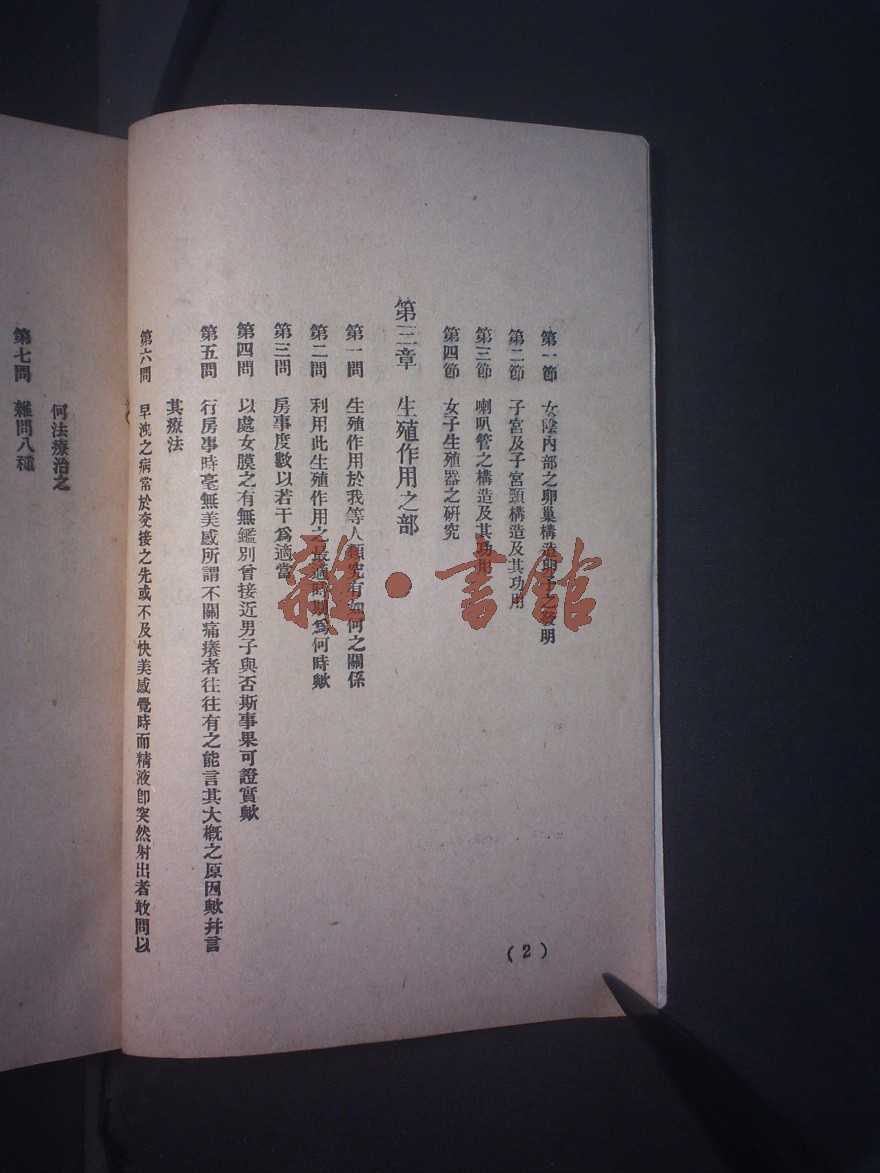 第一節 女陰內部之卵巢構造卵子之發明
第二節 子宮及子宮頸構造及其功用
第三節 喇叭管之構造及其功用
第四節 女子生殖器之研究
第三章 生殖作用之部
第一問 生殖作用於我等人類究有如何之關係
第二問 利用此生殖作用之最適時期爲何時歟
第三問 房事度數以若干爲適當
第四問 以處女膜之有無鑑別曾接近男子與否斯事果可證實歟
第五問 行房事時毫無美感所謂不關痛癢者往往有之能言其大概之原因歟幷言
其療法
第六問 早洩之病常於交接之先或不及快美感覺時而精液卽突然射出者敢問以
何法療治之
第七問 雜問八種
(2)
雜·書館